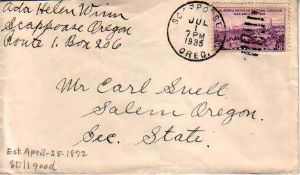 Ada Helen Winn
Scappoose Oregon
Route 1. Box 206
SCAPPOOSE
JUL
7 PM
1935
OREG.
Mr Carl Snell
Salem Oregon.
Sec. State.
Est April-25-1872
Still good